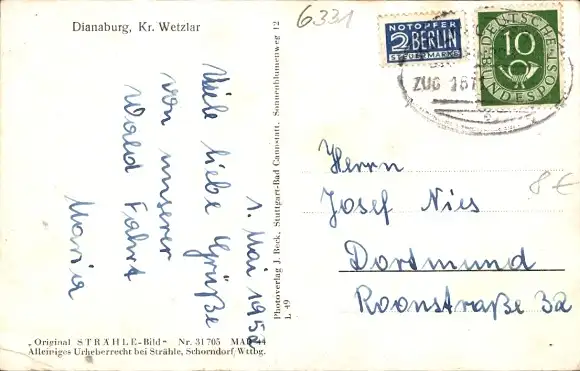 Dianaburg, Kr. Wetzlar
6331
NOTOPFER
2 BERLIN
STEUERMARKE
DEUTSCHE BUNDESPOST
10
ZUG 187
1. Mai 1952
Viele liebe Grüße
von unserer
Wald Fahrt
Maria
Photoverlag J. Beck, Stuttgart-Bad Cannstatt, Sonnenblumenweg 12
L 49
Herrn
Josef Nies
Dortmund
Roonstraße 32
8 €
„Original STRÄHLE-Bild" Nr. 31705 MAD 44
Alleiniges Urheberrecht bei Strähle, Schorndorf/Wttbg.